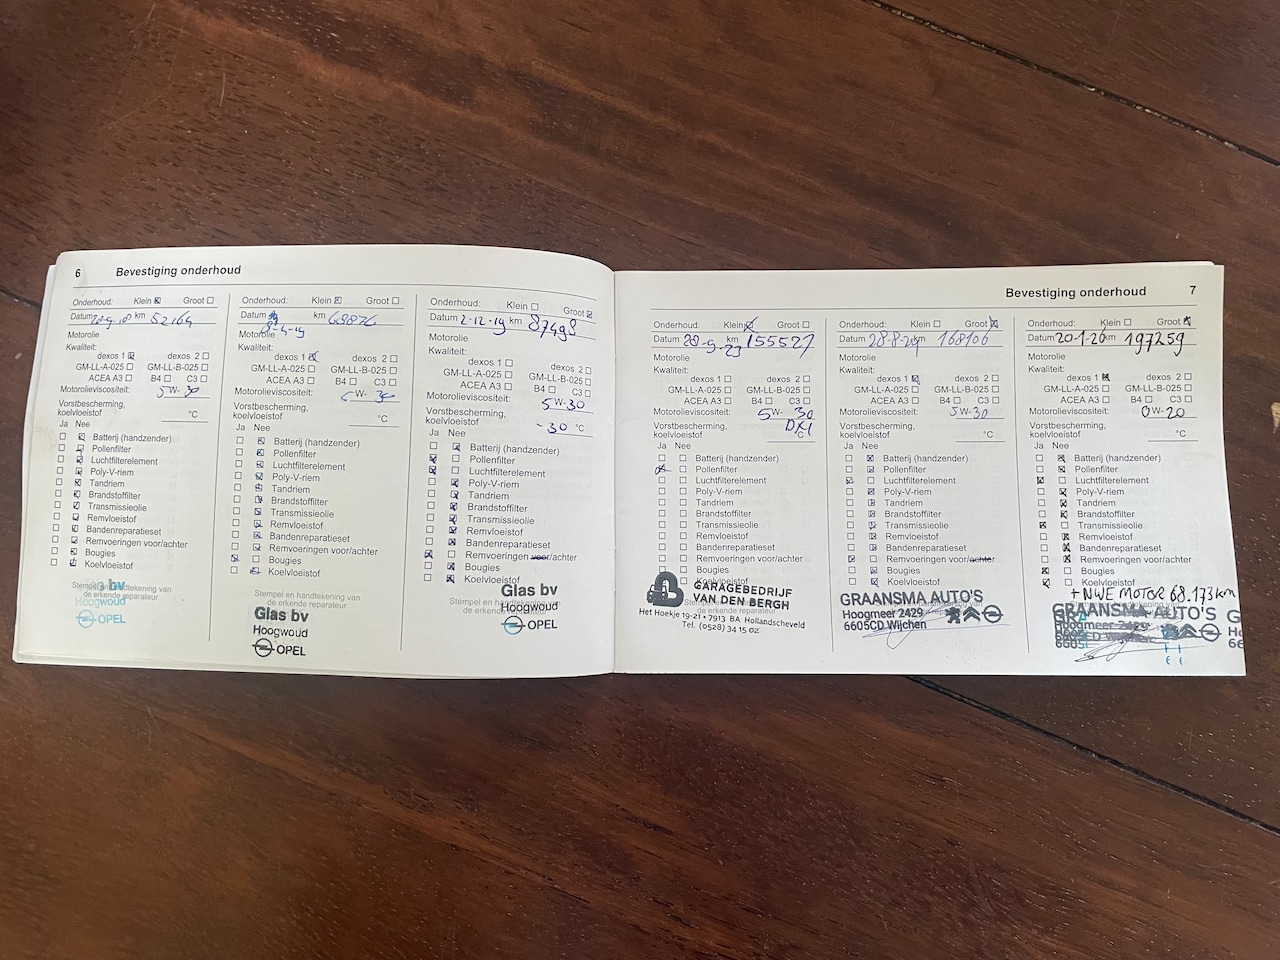 6 Bevestiging onderhoud
Onderhoud: Klein ☒ Groot ☐
Datum km 52164
Motorolie
Kwaliteit:
dexos 1 ☒ dexos 2 ☐
GM-LL-A-025 ☐ GM-LL-B-025 ☐
ACEA A3 ☐ B4 ☐ C3 ☐
Motorolieviscositeit: 5W-30
Vorstbescherming,
koelvloeistof °C
Ja Nee
☐ ☒ Batterij (handzender)
☐ ☒ Pollenfilter
☐ ☒ Luchtfilterelement
☐ ☒ Poly-V-riem
☐ ☒ Tandriem
☐ ☒ Brandstoffilter
☐ ☒ Transmissieolie
☐ ☒ Remvloeistof
☐ ☒ Bandenreparatieset
☐ ☒ Remvoeringen voor/achter
☐ ☒ Bougies
☐ ☒ Koelvloeistof
Stempel en handtekening van
de erkende reparateur
bv
Hoogwoud
OPEL
Onderhoud: Klein ☒ Groot ☐
Datum 8-4-19 km 69876
Motorolie
Kwaliteit:
dexos 1 ☒ dexos 2 ☐
GM-LL-A-025 ☐ GM-LL-B-025 ☐
ACEA A3 ☐ B4 ☐ C3 ☐
Motorolieviscositeit: W-30
Vorstbescherming,
koelvloeistof °C
Ja Nee
☐ ☒ Batterij (handzender)
☐ ☒ Pollenfilter
☐ ☒ Luchtfilterelement
☐ ☒ Poly-V-riem
☐ ☒ Tandriem
☐ ☒ Brandstoffilter
☐ ☒ Transmissieolie
☐ ☒ Remvloeistof
☐ ☒ Bandenreparatieset
☐ ☒ Remvoeringen voor/achter
☒ ☐ Bougies
☐ ☒ Koelvloeistof
Stempel en handtekening van
de erkende reparateur
Glas bv
Hoogwoud
OPEL
Onderhoud: Klein ☐ Groot ☒
Datum 2-12-19 km 87498
Motorolie
Kwaliteit:
dexos 1 ☐ dexos 2 ☐
GM-LL-A-025 ☐ GM-LL-B-025 ☐
ACEA A3 ☐ B4 ☐ C3 ☐
Motorolieviscositeit: 5W-30
Vorstbescherming,
koelvloeistof -30 °C
Ja Nee
☐ ☒ Batterij (handzender)
☒ ☐ Pollenfilter
☒ ☐ Luchtfilterelement
☐ ☒ Poly-V-riem
☐ ☒ Tandriem
☐ ☒ Brandstoffilter
☐ ☒ Transmissieolie
☐ ☒ Remvloeistof
☐ ☒ Bandenreparatieset
☒ ☐ Remvoeringen voor/achter
☐ ☒ Bougies
☐ ☒ Koelvloeistof
Stempel en
Glas bv
Hoogwoud
OPEL
Bevestiging onderhoud 7
Onderhoud: Klein ☒ Groot ☐
Datum 28-9-23 km 155527
Motorolie
Kwaliteit:
dexos 1 ☐ dexos 2 ☐
GM-LL-A-025 ☐ GM-LL-B-025 ☐
ACEA A3 ☐ B4 ☐ C3 ☐
Motorolieviscositeit: 5W-30
Vorstbescherming,
koelvloeistof °C
Ja Nee
☐ ☐ Batterij (handzender)
☒ ☐ Pollenfilter
☐ ☐ Luchtfilterelement
☐ ☐ Poly-V-riem
☐ ☐ Tandriem
☐ ☐ Brandstoffilter
☐ ☐ Transmissieolie
☐ ☐ Remvloeistof
☐ ☐ Bandenreparatieset
☐ ☐ Remvoeringen voor/achter
☐ ☐ Bougies
☐ Koelvloeistof
GARAGEBEDRIJF
VAN DEN BERGH
Het Hoekje 19-21 • 7913 BA Hollandscheveld
Tel. (0528) 34 15 02
Onderhoud: Klein ☐ Groot ☒
Datum 28-8-24 km 168106
Motorolie
Kwaliteit:
dexos 1 ☒ dexos 2 ☐
GM-LL-A-025 ☐ GM-LL-B-025 ☐
ACEA A3 ☐ B4 ☐ C3 ☐
Motorolieviscositeit: 5W-30
Vorstbescherming,
koelvloeistof °C
Ja Nee
☐ ☒ Batterij (handzender)
☐ ☒ Pollenfilter
☒ ☐ Luchtfilterelement
☐ ☒ Poly-V-riem
☐ ☒ Tandriem
☐ ☒ Brandstoffilter
☐ ☒ Transmissieolie
☐ ☒ Remvloeistof
☐ ☒ Bandenreparatieset
☒ ☐ Remvoeringen voor/achter
☐ ☒ Bougies
☐ ☒ Koelvloeistof
GRAANSMA AUTO'S
Hoogmeer 2429
6605CD Wijchen
Onderhoud: Klein ☐ Groot ☒
Datum 20-1-26 km 197259
Motorolie
Kwaliteit:
dexos 1 ☒ dexos 2 ☐
GM-LL-A-025 ☐ GM-LL-B-025 ☐
ACEA A3 ☐ B4 ☐ C3 ☐
Motorolieviscositeit: 0W-20
Vorstbescherming,
koelvloeistof °C
Ja Nee
☐ ☒ Batterij (handzender)
☐ ☒ Pollenfilter
☒ ☐ Luchtfilterelement
☐ ☒ Poly-V-riem
☐ ☒ Tandriem
☐ ☒ Brandstoffilter
☒ ☐ Transmissieolie
☐ ☒ Remvloeistof
☐ ☒ Bandenreparatieset
☐ ☒ Remvoeringen voor/achter
☒ ☐ Bougies
☒ ☐ Koelvloeistof
+ NWE MOTOR 68.173km
GRAANSMA AUTO'S
Hoogmeer 2429
6605CD Wijchen